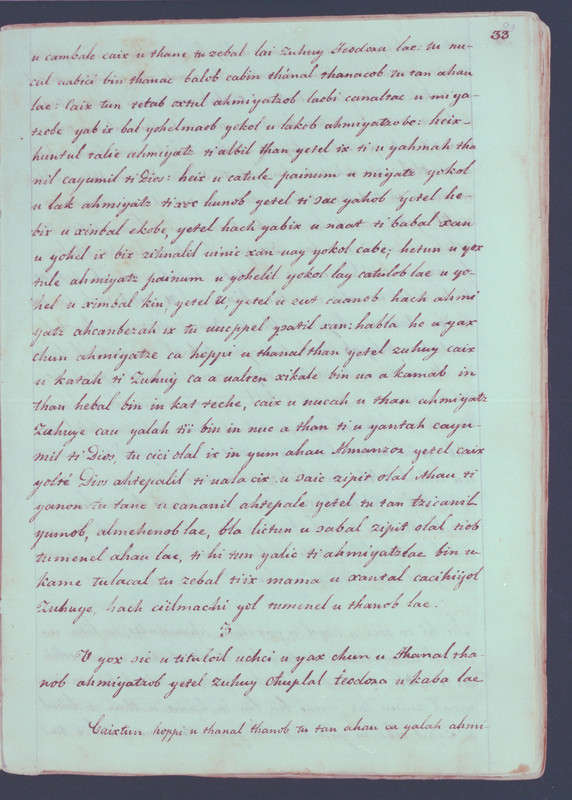 33
u cambale caix u thane tu zebal lai Zuhuy Teodora lae: tu nu-
cul uabici bin thanac balob cabin thánal thanacob tu tan ahau
lae: Caix tun retab oxtul ahmiyatzob laobi canaltac u miya-
tzobe yab ix bal yohelmaob yokol u lakob ahmiyatzobe: heix-
huntul talic ahmiyatz ti albil than yetel ix ti u yahmah tha
nil cayumil ti Dios: heix u catule painum u miyatz yokol
u lak ahmiyatz ti xoc hunob yetel ti sac yahob yetel he-
bix u xinbal ekobe, yetel hach yabix u naat ti babal xan
u yohel ix bix zihnalil uinic xan uay yokol cabe; hetun u yox
tule ahmiyatz painum u yohelil yokol lay catulob lae u yo-
hel u ximbal kin, yetel U, yetel u cut caanob hach ahmi
yatz ahcanbezah ix tu uucppel ppatil xan: habla he u yax
chun ahmiyatze ca hoppi u thanalthan yetel zuhuy caix
u katah ti Zuhuy ca a ualten xikale bin ua a kamab in
than hebal bin in kat teche, caix u nucah u than ahmiyatz
Zuhuye cau yalah tii bin in nuc a than ti u yantah cayu-
mil ti Dios, tu cici olal ix in yum ahau Almanzor yetel caix
yolté Dios ahtepalil ti uala cix u saic zipit olal Ahau ti
yanon tu tane u cananil ahtepale yetel tu tan tzicanil-
yumob, almehenob lae, bla lictun u sabal zipit olal tiob
tumenel ahau lae, ti hi tun yalic ti ahmiyatzlae bin u-
kame tulacal tu zebal tiix mama u xantal cacihiyol
Zuhuye, hach ciilmachi yol tumenel u thanob lae.
3
V yox sic u tituloil uchci u yax chun u thanal tha-
nob ahmiyatzob yetel zuhuy Chuplal teodora u kaba lae
Caixtun hoppi u thanal thanob tu tan ahau ca yalah ahmi-